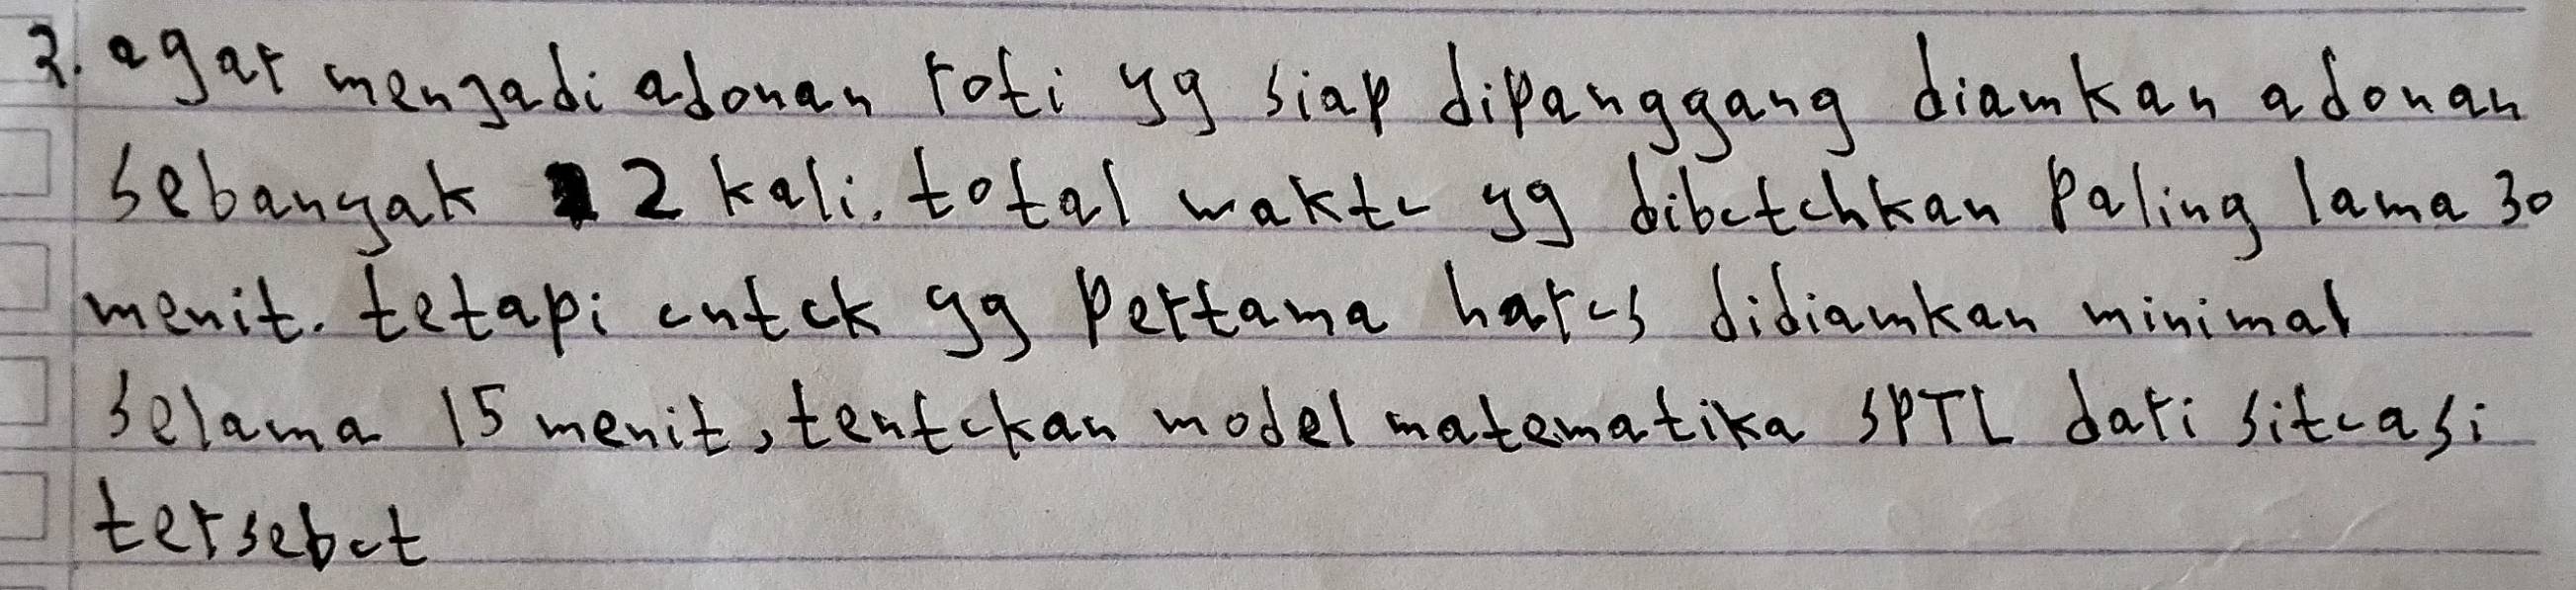 2. agar menjadi adonan roti yg siap dipanggang diamkan adonan
sebanyak 2 kali. total waktu yg dibutuhkan paling lama 30
menit. tetapi untuk yg pertama harus didiamkan minimal
selama 15 menit, tentukan model matematika SPTL dari situasi
tersebut